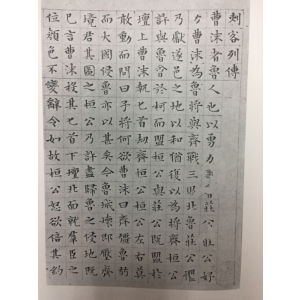 刺客列傳
曹沫者魯人也以勇力莊公莊公好
力曹沫為魯將與齊戰三敗北魯莊公懼
乃獻遂邑之地以和猶復以為將齊桓公
許與魯會于柯而盟桓公與莊公既盟於
壇上曹沫執匕首劫齊桓公桓公左右莫
敢動而問曰子將何欲曹沫曰齊彊魯弱
而大國侵魯亦以甚矣今魯城壞即壓齊
境君其圖之桓公乃許盡歸魯之侵地既
已言曹沫投其匕首下壇北面就羣臣之
位顏色不變辭令如故桓公怒欲倍其約